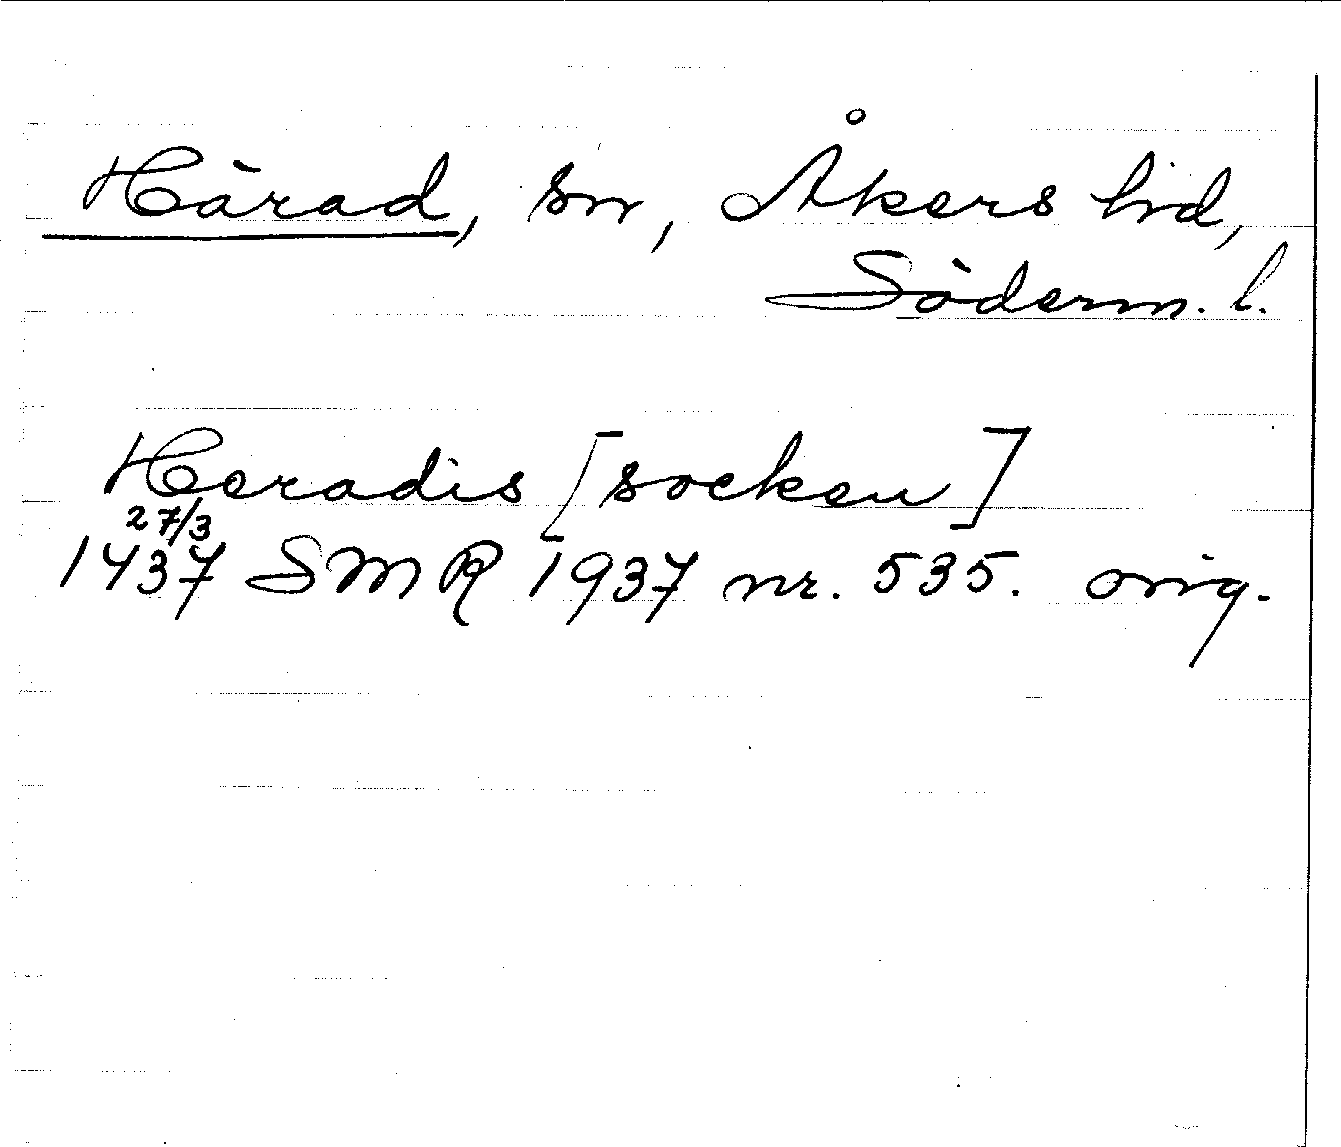 Härad, sn, Åkers hd,
Söderm. l.
Heradis [socken]
27/3
1437 SMR 1937 nr. 535. orig.